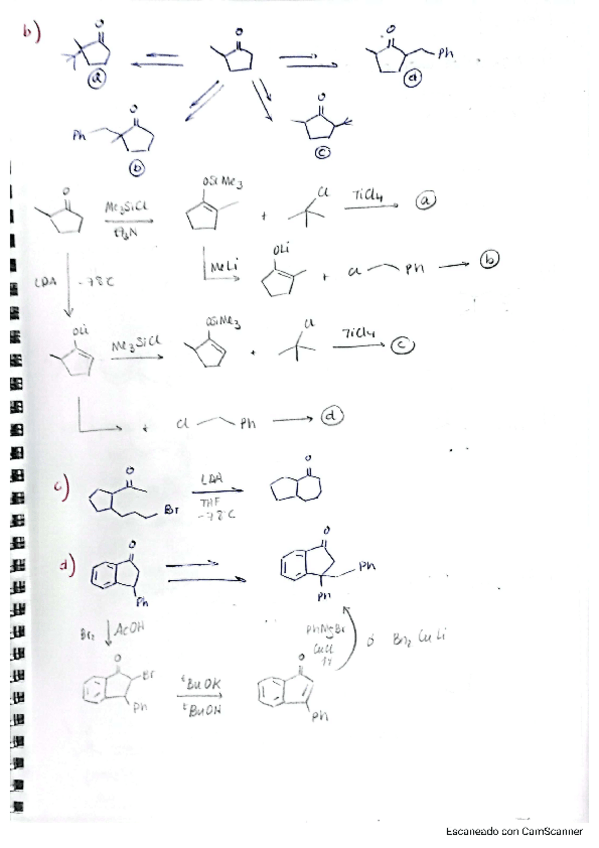 b)
O
O
O
Ph
a
d
O
O
Ph
c
b
O
Me3SiCl
Et3N
OSiMe3
+
Cl
TiCl4
a
MeLi
OLi
+
Cl
Ph
b
LDA
-78°C
OLi
Me3SiCl
OSiMe3
+
Cl
TiCl4
c
+
Cl
Ph
d
c)
O
Br
LDA
THF
-78°C
O
d)
O
Ph
O
Ph
Ph
Br2
AcOH
O
Br
Ph
tBuOK
tBuOH
O
Ph
PhMgBr
CuCl
ó
Bn2CuLi
Escaneado con CamScanner